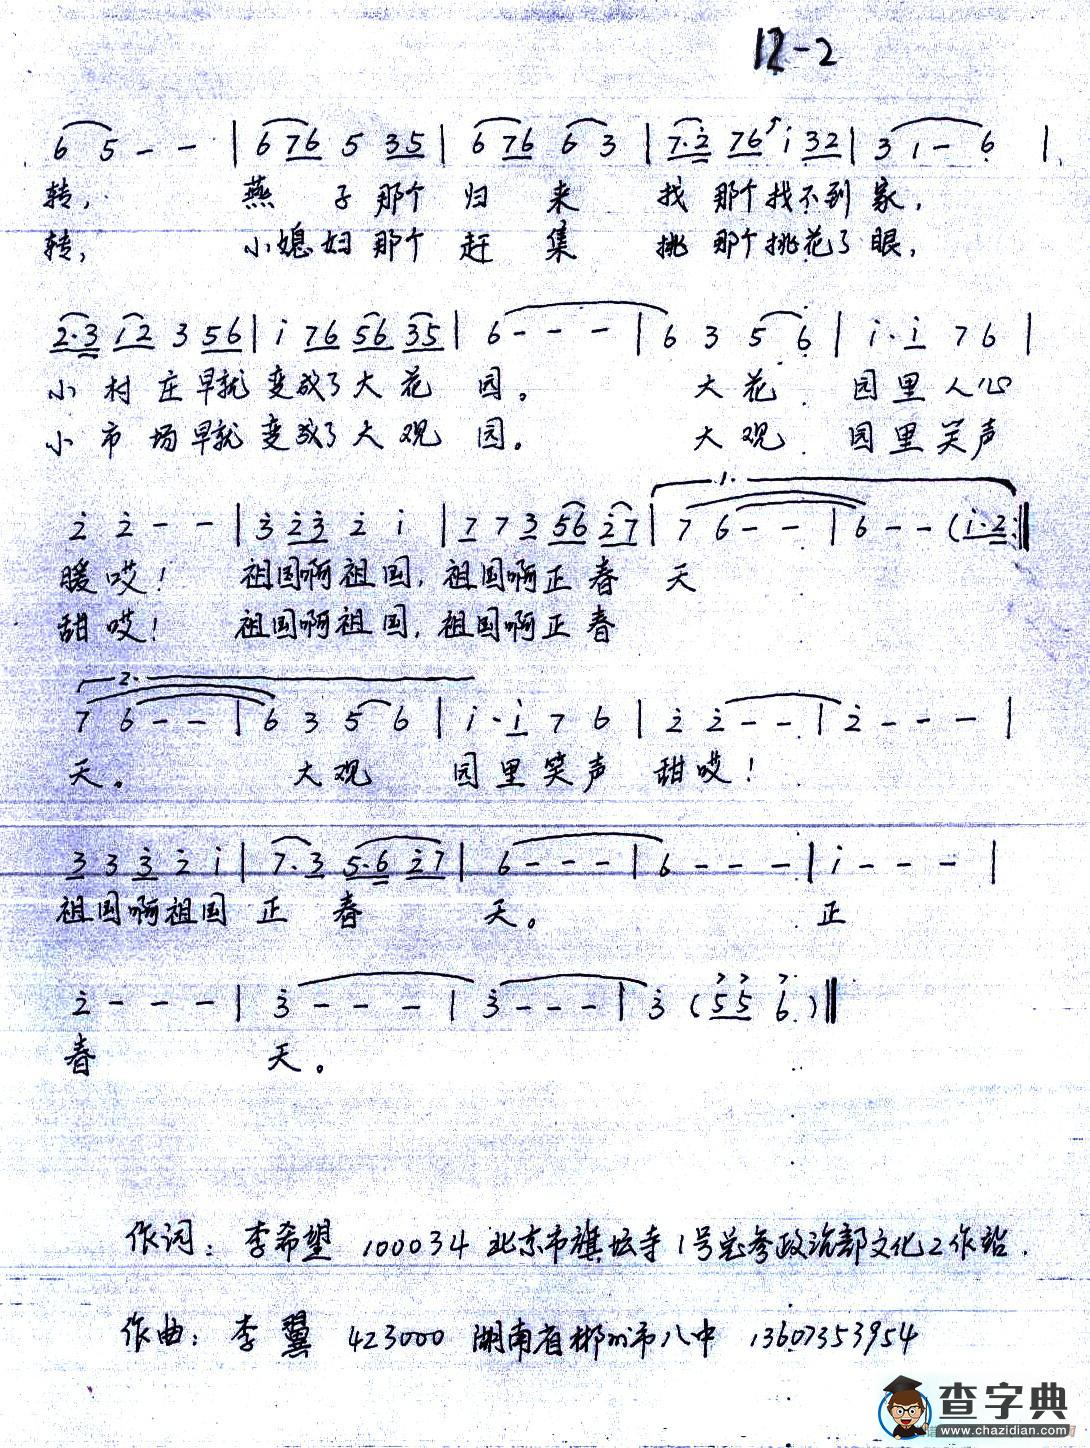 12-2
6 5 - - | 6 76 5 35 | 6 76 6 3 | 7·2 76 i 32 | 3 1 - 6 |
转， 燕 子 那个 归 来 找 那个 找不到 家，
转， 小媳妇 那个 赶 集 挑 那个 挑花了 眼，
2·3 i2 3 56 | i 76 56 35 | 6 - - - | 6 3 5 6 | i· i 7 6 |
小 村 庄 早就 变成了 大 花 园。 大 花 园里 人心
小 市 场 早就 变成了 大 观 园。 大 观 园里 笑声
2̇ 2̇ - - | 3̇ 2̇3̇ 2̇ i | 7 7 3 56 2̇7 | 1. 7 6 - - | 6 - - (i·2̇ :‖
暖 哎！ 祖国啊 祖 国，祖国啊 正 春 天
甜 哎！ 祖国啊 祖 国，祖国啊 正 春
2. 7 6 - - | 6 3 5 6 | i· i 7 6 | 2̇ 2̇ - - | 2̇ - - - |
天。 大 观 园里 笑声 甜 哎！
3 3 3̇ 2̇ i | 7·3 5·6 2̇7 | 6 - - - | 6 - - - | i - - - |
祖国啊 祖国 正 春 天。 正
2̇ - - - | 3̇ - - - | 3̇ - - - | 3̇ (55 6) ‖
春 天。
作词：李希望 100034 北京市旗坛寺1号总参政治部文化工作站.
作曲：李 翼 423000 湖南省郴州市八中 13607353954
查字典
www.chazidian.com